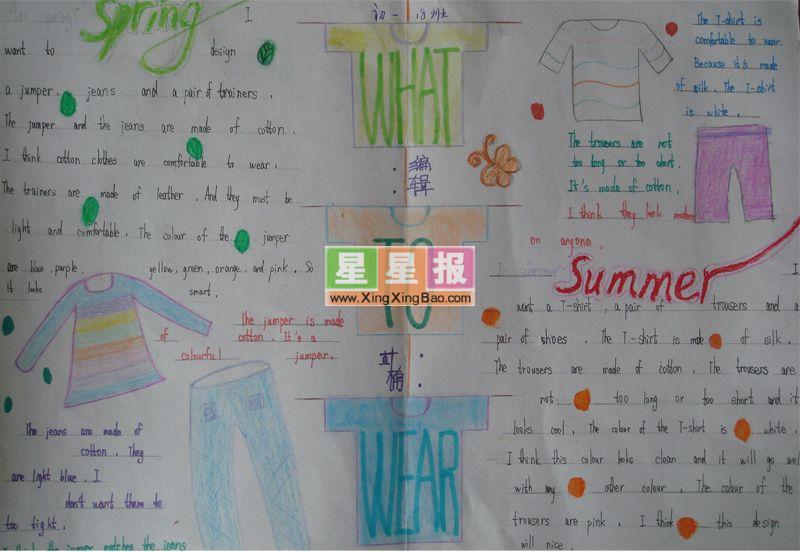 In spring
Spring I
want to design
a jumper. jeans and a pair of trainers.
The jumper and the jeans are made of cotton.
I think cotton clothes are comfortable to wear.
The trainers are made of leather. And they must be
light and comfortable. The colour of the jumper
are blue. purple. yellow, green, orange and pink. So
it looks smart.
The jumper is made
of cotton. It's a
colourful jumper.
The jeans are made of
cotton. They
are light blue. I
don't want them to
too tight.
I think the jumper matches the jeans
初一
WHAT
编辑
:
TO
:
WEAR
星星报
www.XingXingBao.com
The T-shirt is
comfortable to wear.
Because it's made
of silk. The T-shirt
is white.
The trousers are not
too long or too short.
It's made of cotton.
I think they look modern
on anyone.
In summer
Summer I
want a T-shirt, a pair of trousers and a
pair of shoes. The T-shirt is made of silk.
The trousers are made of cotton. The trousers are
not too long or too short and it
looks cool. The colour of the T-shirt is white.
I think this colour looks clean and it will go well
with any other colour. The colour of the
trousers are pink. I think this design
will nice.